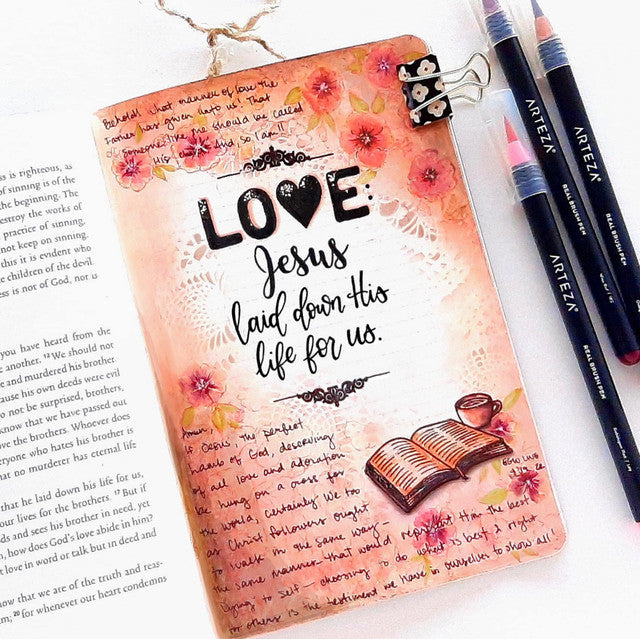 is righteous, as
of sinning is of the
the beginning. The
destroy the works of
practice of sinning.
not keep on sinning.
this it is evident who
e children of the devil.
ess is not of God, nor is
you have heard from the
e another. 12 We should not
e and murdered his brother.
ause his own deeds were evil
o not be surprised, brothers,
know that we have passed out
ove the brothers. Whoever does
eryone who hates his brother is
hat no murderer has eternal life
that he laid down his life for us,
our lives for the brothers. 17 But if
ds and sees his brother in need, yet
n, how does God's love abide in him?
t love in word or talk but in deed and
now that we are of the truth and reas-
; 20 for whenever our heart condemns
Behold! What manner of love the
Father has given unto us! That
someone like me should be called
His And, so I am!!
LOVE:
Jesus
laid down His
life for us.
Amen,
If Jesus, the perfect
lamb of God, deserving
of all love and adoration
be hung on a cross for
the world, certainly we too
as Christ followers ought
to walk in the same way -
the same manner that would represent Him the best
dying to self - choosing to do what is best & right
for others is the testiment we have in ourselves to show all!
ARTEZA
REAL BRUSH PEN
ARTEZA
REAL BRUSH PEN
ARTEZA
REAL BRUSH PEN